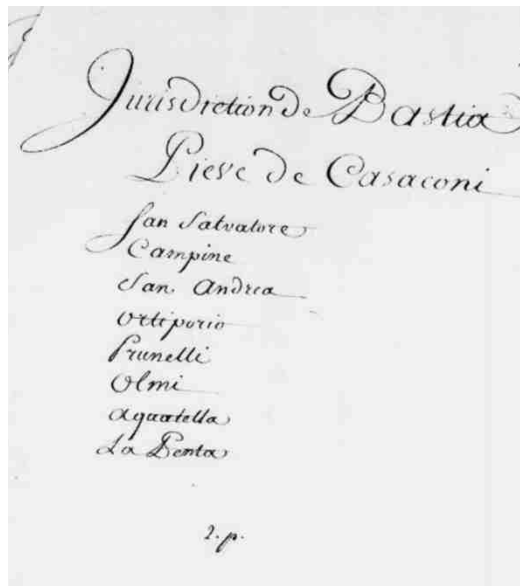 Jurisdiction de Bastia
Pieve de Casaconi
San Salvatore
Campine
San Andrea
Ortiporio
Prunelli
Olmi
aquatella
La Penta
2. p.